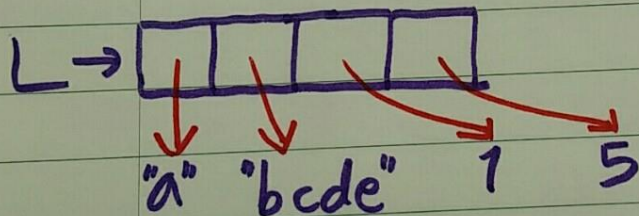 L →
"a" "bcde" 1 5